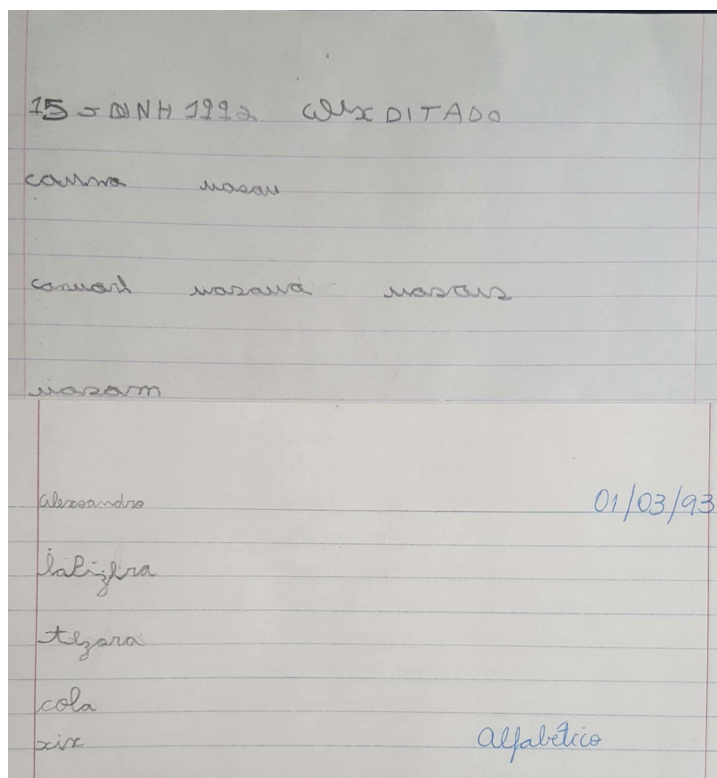 15 - DNH 1992 alx DITADO
cauma uasau
canuarl uasaua uasaus
uasam
alexsandro 01/03/93
lalizera
tezora
cola
xix Alfabético